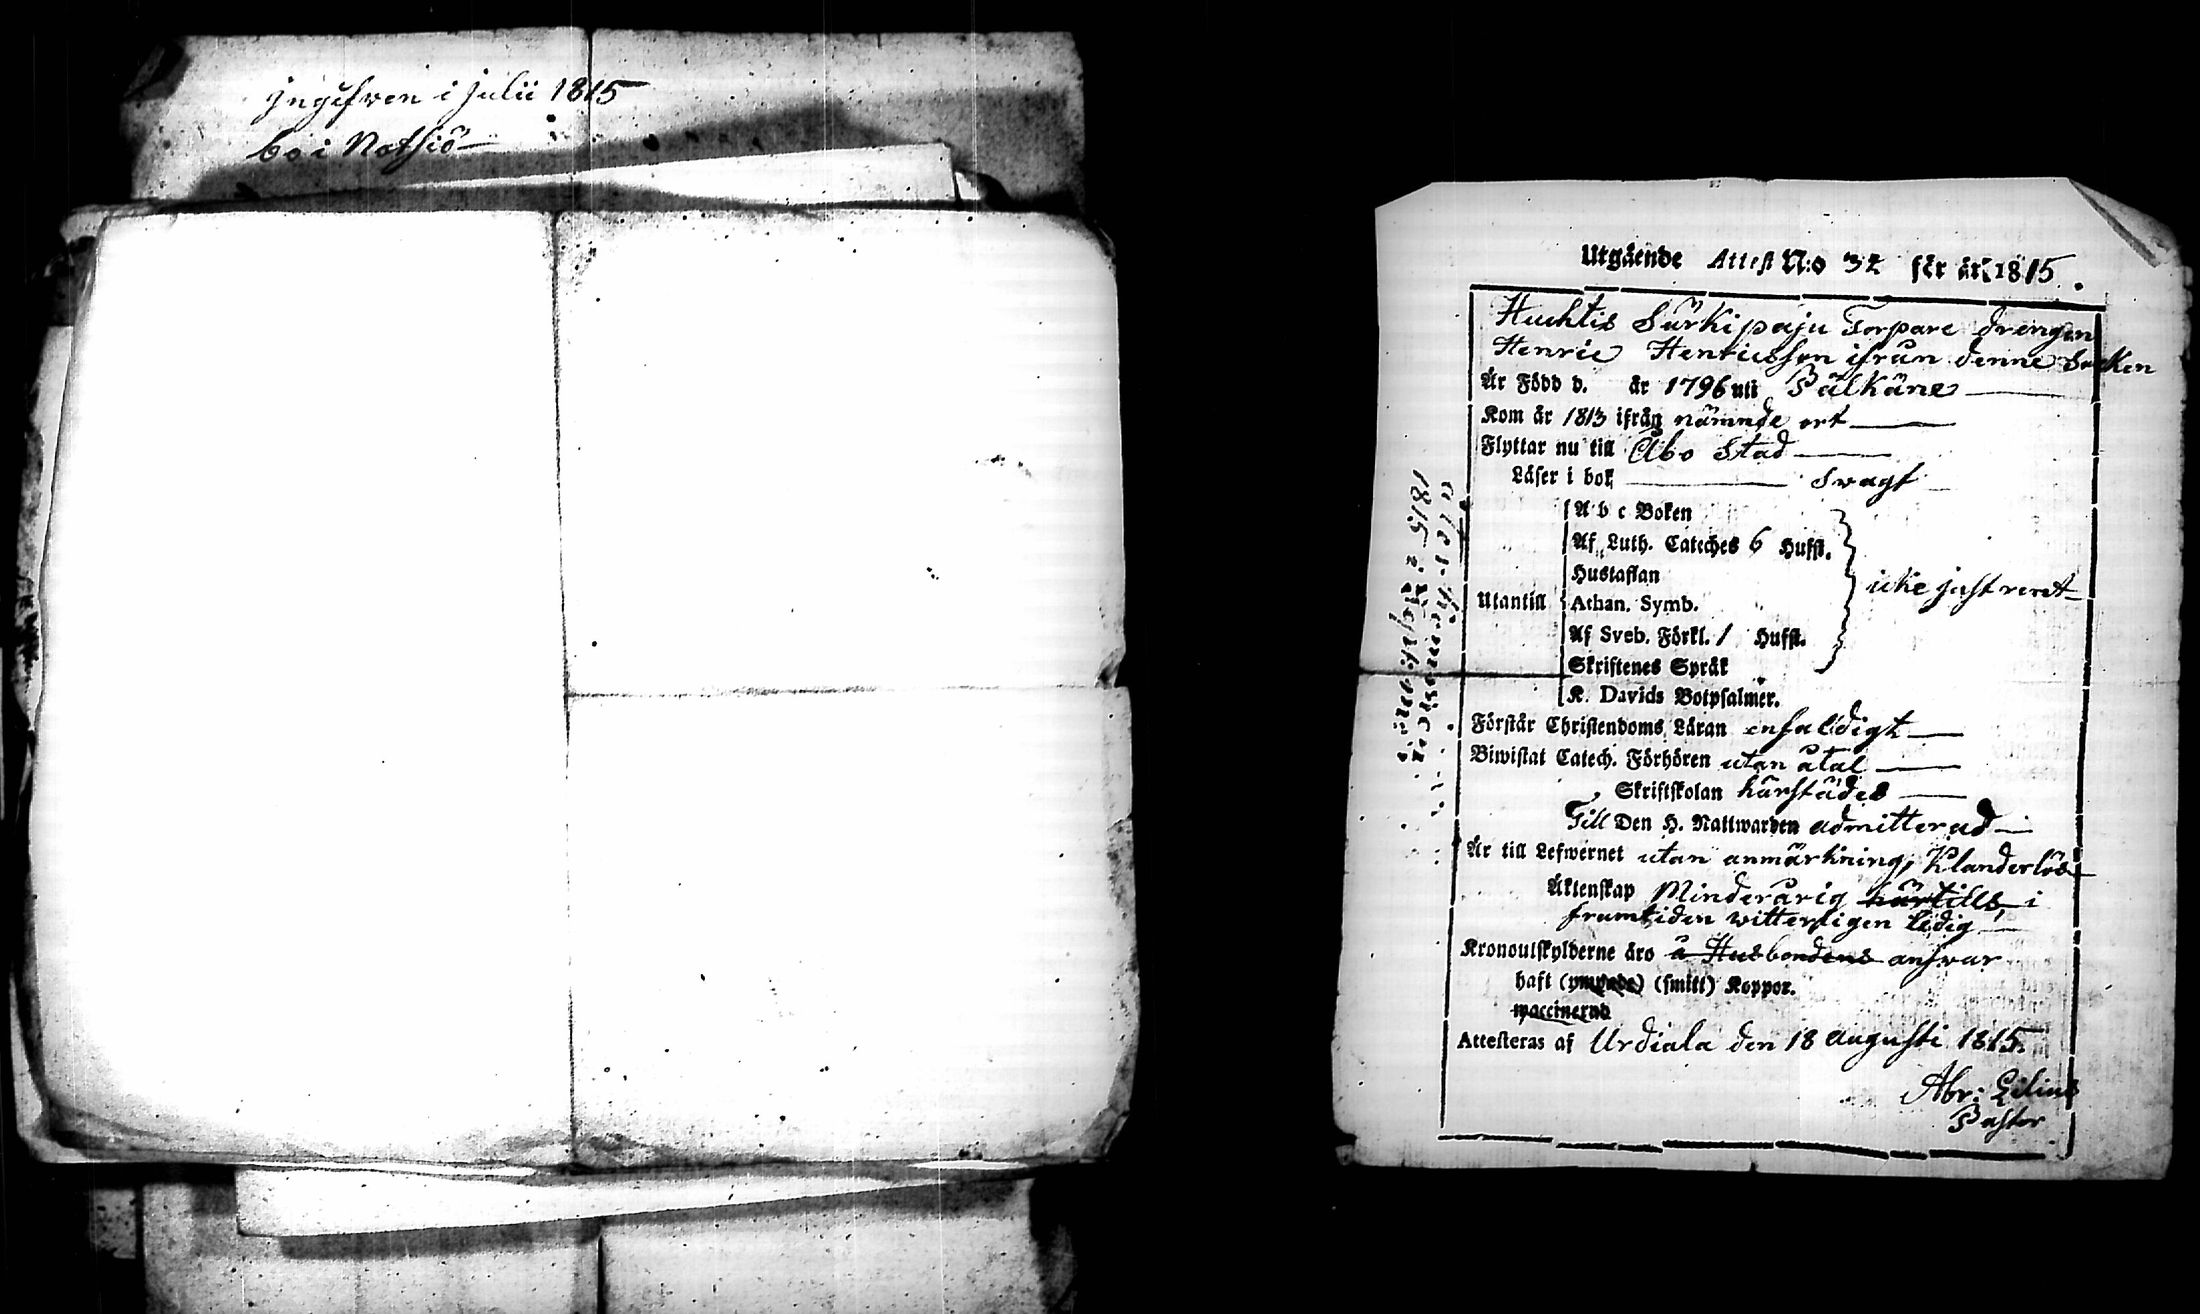 jngifven i Julii 1815
bo i Notsiö
Utgående Attest N:o 32 för år 1815.
Huchtis Särkipaju Torpare drengen
Henric Henricsson ifrån denne Socken
År Född d. år 1796 uti Pälkäne
Kom år 1813 ifrån nämnde ort
Flyttar nu till Åbo Stad
Läser i bok svagt
Utantill
A b c Boken
Af Luth. Cateches 6 Hufst.
Hustaflan
Athan. Symb.
Af Sveb. Förkl. 1 Hufst.
Skriftenes Språk
K. Davids Botpsalmer.
icke just rent
Förstår Christendoms Läran enfaldigt
Biwistat Catech. Förhören utan åtal
Skriftskolan härstädes
Till Den H. Nattwarden admitterad
Är till Lefwernet utan anmärkning, Klanderlös
Äktenskap Minderårig härtills, i
framtiden witterligen ledig
Kronoutskylderne äro å Husbondens answar
haft (ympade) (smitt) Koppor.
waccinerad
Attesteras af Urdiala den 18 Augusti 1815.
Abr: Lilius
Pastor
1815